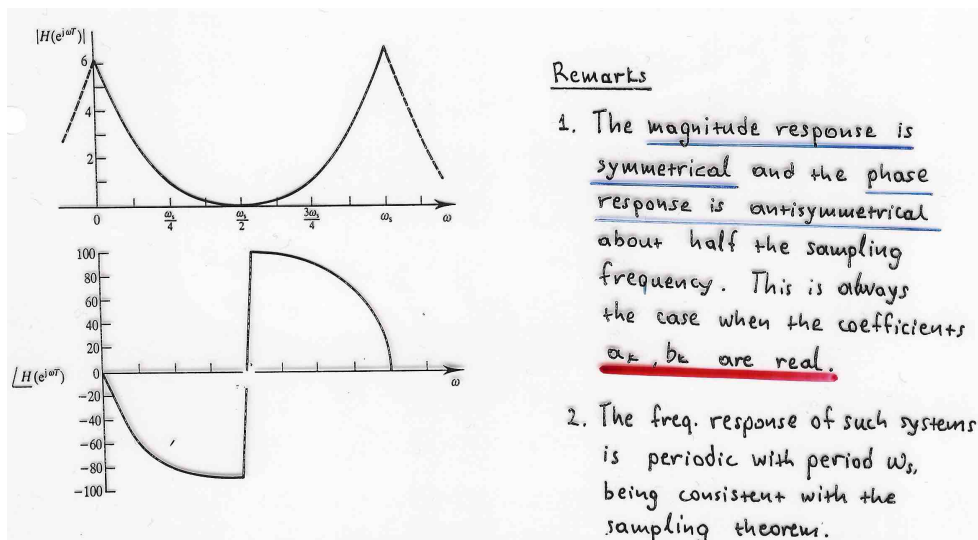 |H(e^{jωT})|
6
4
2
0
ω_s/4
ω_s/2
3ω_s/4
ω_s
ω
100
80
60
40
20
0
−20
−40
−60
−80
−100
∠H(e^{jωT})
ω
Remarks
1. The magnitude response is
symmetrical and the phase
response is antisymmetrical
about half the sampling
frequency. This is always
the case when the coefficients
a_k, b_k are real.
2. The freq. response of such systems
is periodic with period ω_s,
being consistent with the
sampling theorem.